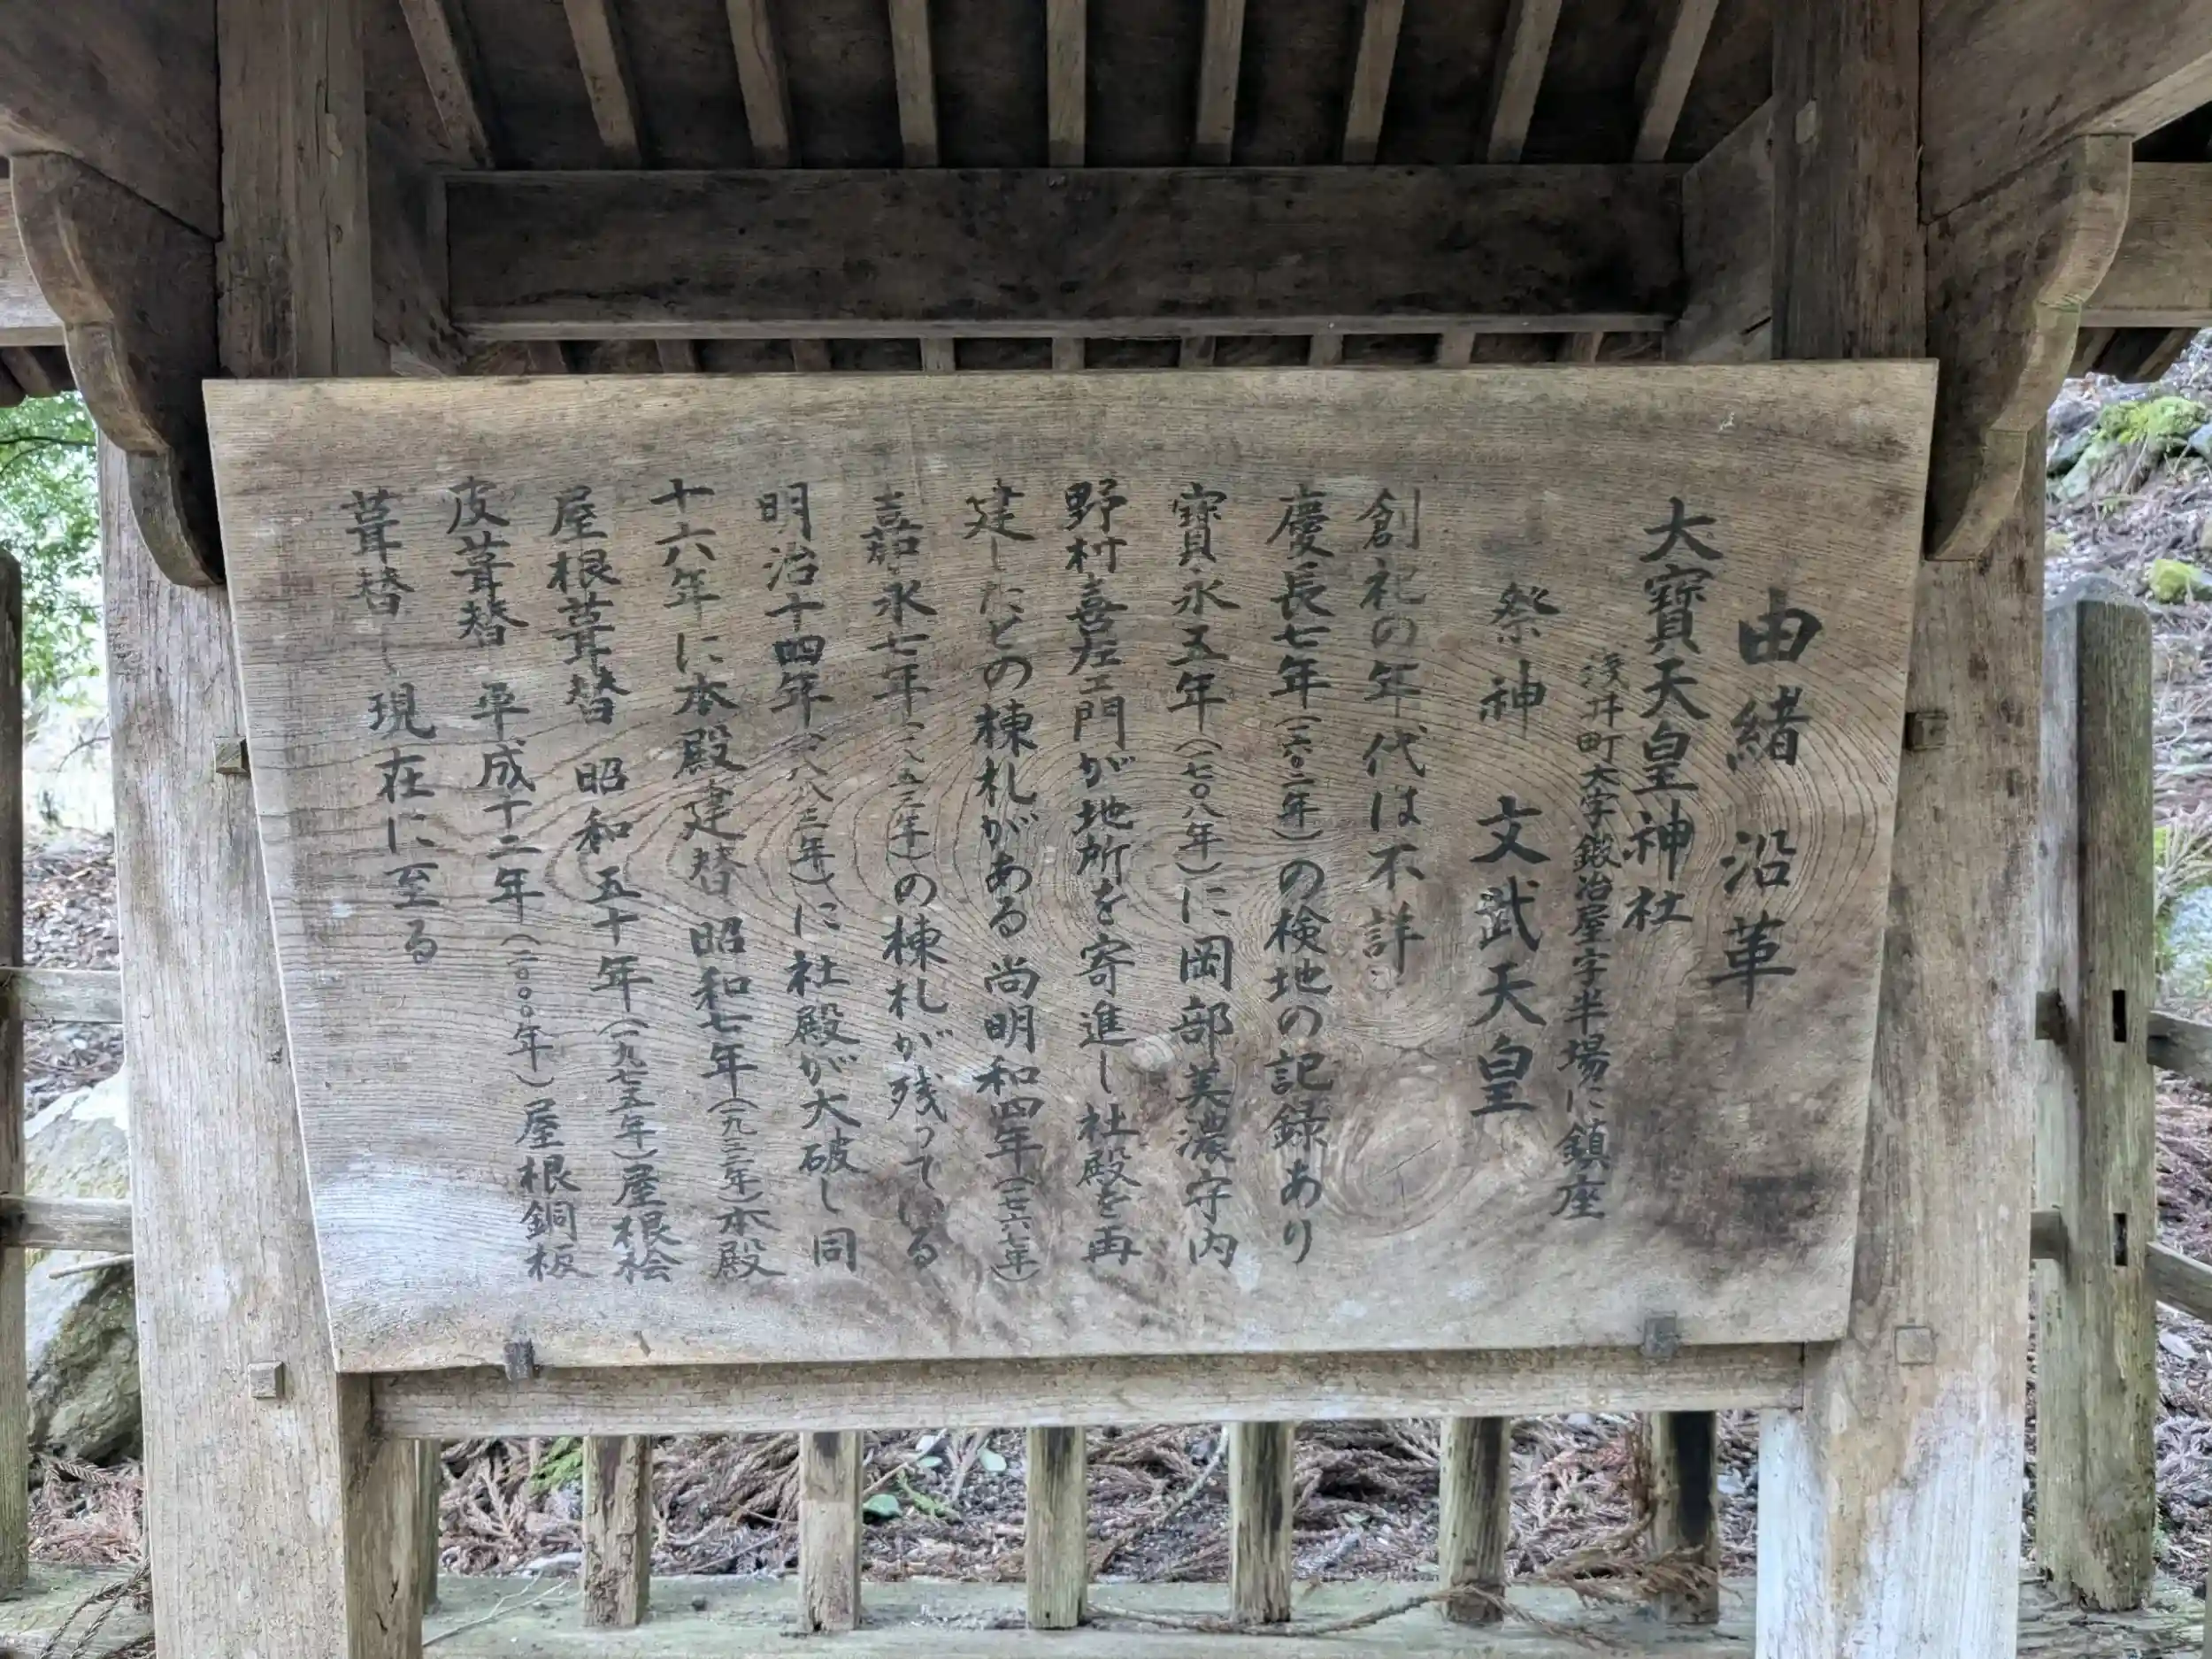 由緒沿革
大寶天皇神社
浅井町大字鍛冶屋字半場に鎮座
祭神 文武天皇
創祀の年代は不詳
慶長七年(一六〇二年)の検地の記録あり
寶永五年(一七〇八年)に岡部美濃守内
野村喜左ェ門が地所を寄進し社殿を再
建したとの棟札がある 尚明和四年(一七六七年)
嘉永七年(一八五四年)の棟札が残っている
明治十四年(一八八三年)に社殿が大破し同
十六年に本殿建替 昭和七年(一九三二年)本殿
屋根葺替 昭和五十年(一九七五年)屋根桧
皮葺替 平成十二年(二〇〇〇年)屋根銅板
葺替し現在に至る